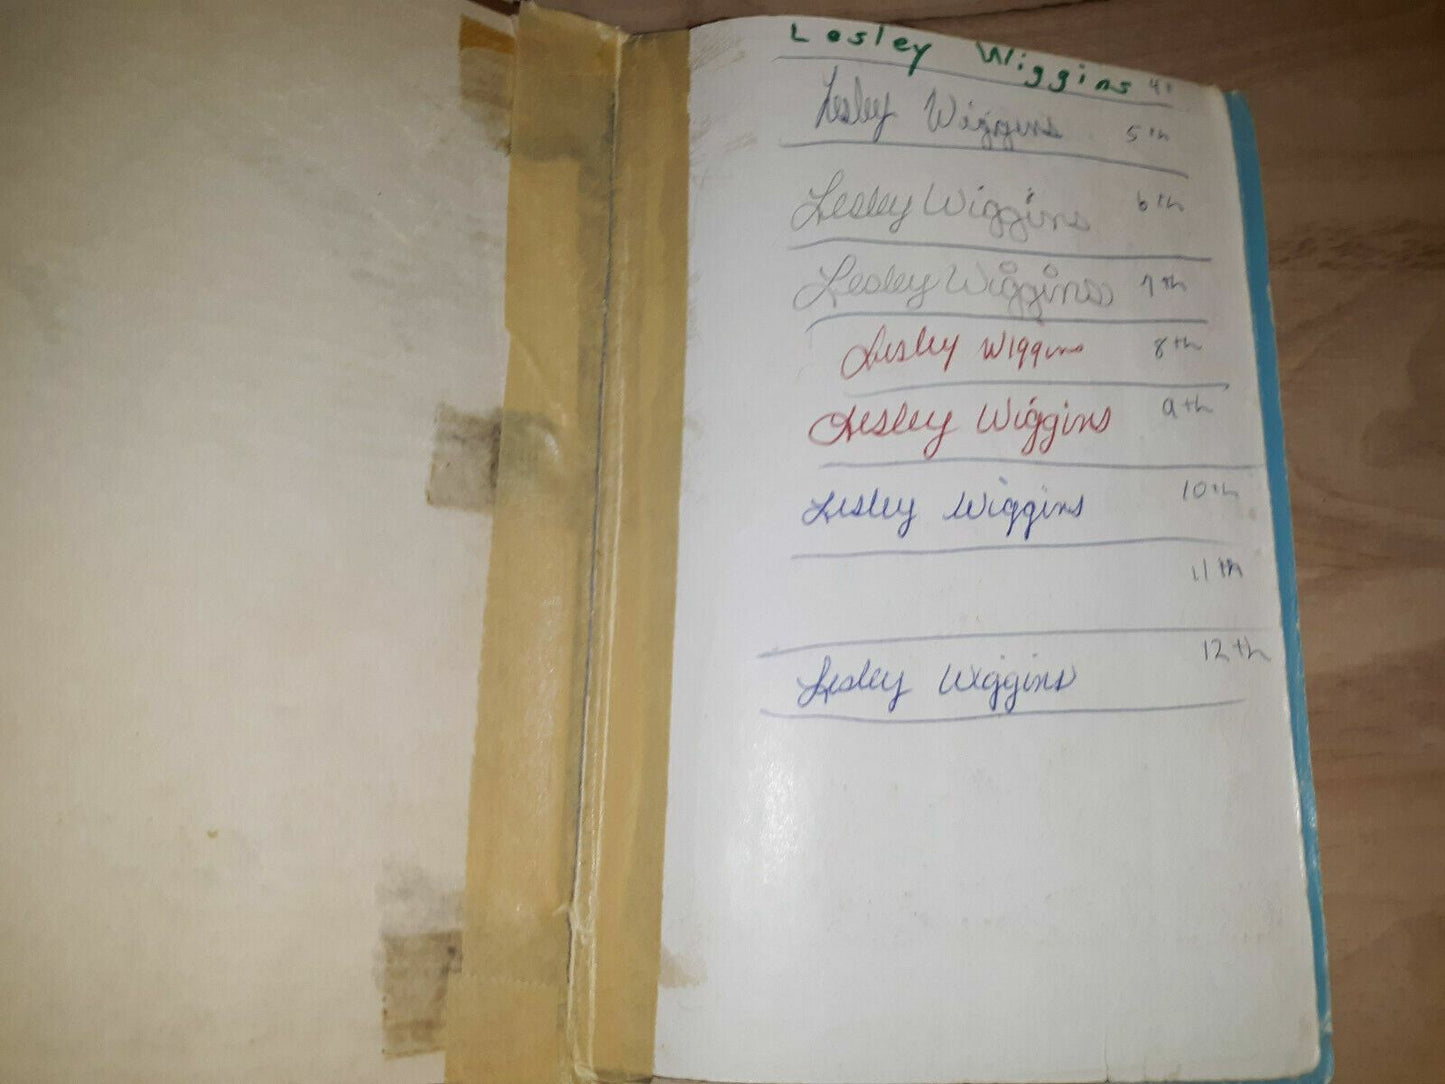 Lesley Wiggins 4t
Lesley Wiggins 5th
Lesley Wiggins 6th
Lesley Wiggins 7th
Lesley Wiggins 8th
Lesley Wiggins 9th
Lesley Wiggins 10th
11th
Lesley Wiggins 12th